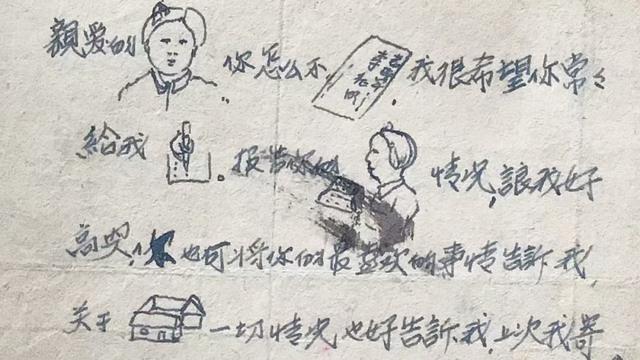 親爱的 你怎么不 我很希望你常々
給我 。报告你的 情况,讓我好
高兴,你也可将你的最喜欢的事情告訴我,
关于 一切情况也好告訴我,上次我寄